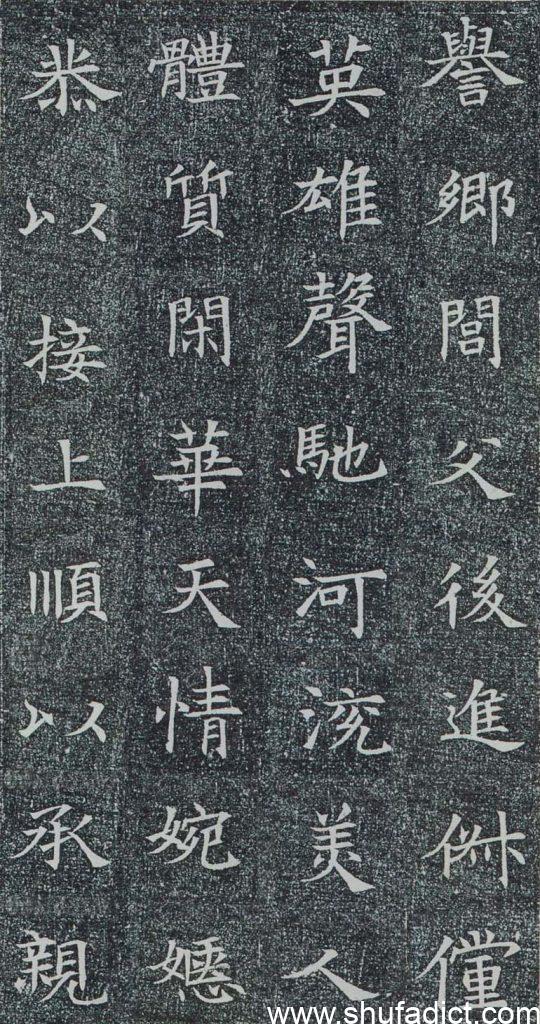 譽鄉閭父後進俶儻
英雄聲馳河渷美人
體質閑華天情婉嫕
恭以接上順以承親
www.shufadict.com